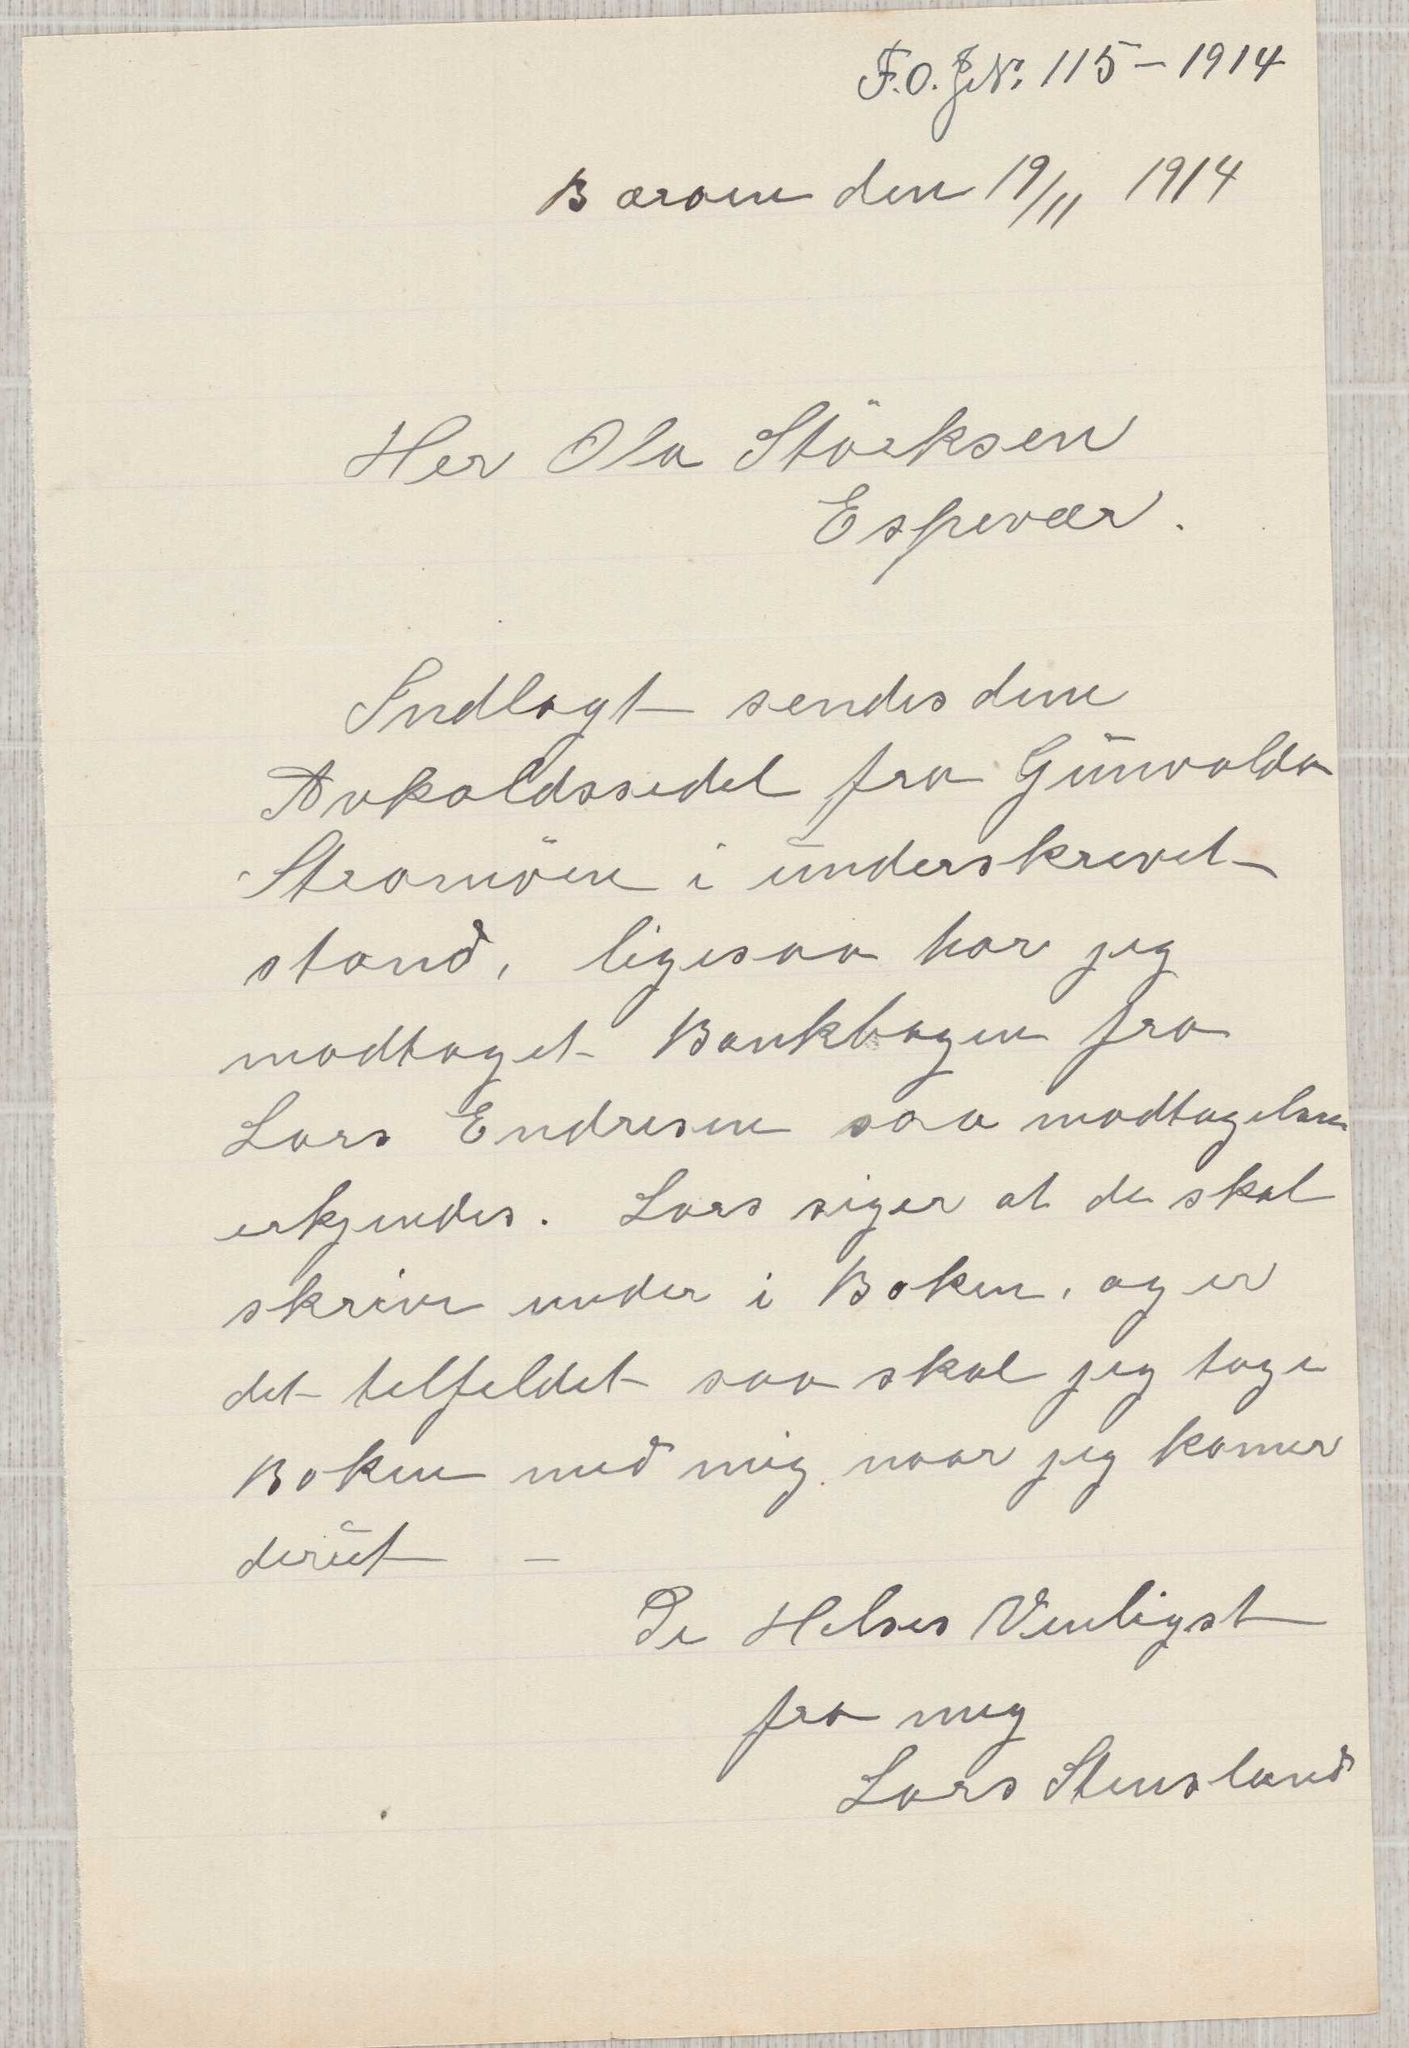 F.O. J.Nr. 115 - 1914
Barane den 19/11 1914
Her Ola Störksen
Espevær.
Indlagt sendes den
Avkaldssedel fra Gunvalda
Stramöen i underskrevet
stand, ligesaa har jeg
modtaget Bankbogen fra
Lars Endresen saa modtagelsen
erkjendes. Lars siger at de skal
skrive under i Boken, og er
det telfeldet saa skal jeg tage
Boken med mig naar jeg komer
derut -
De Helses Venligst
fra mig
Lars Stensland